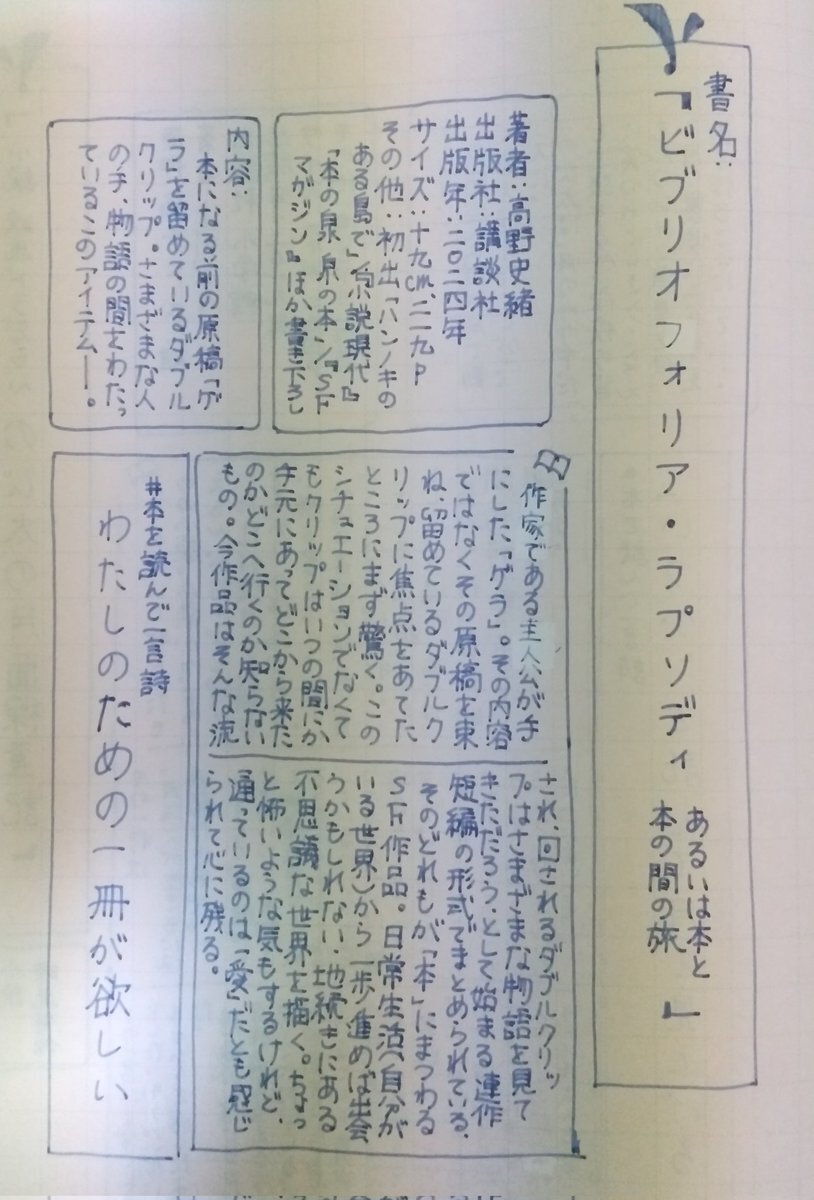 書名:
『ビブリオフォリア・ラプソディ
あるいは本と
本の間の旅』
著者:高野史緒
出版社:講談社
出版年:二〇二四年
サイズ:十九cm、二一九P
その他:初出「ハンノキの
ある島で」『小説現代』
「本の泉 泉の本」『SF
マガジン』ほか書き下ろし
内容:
本になる前の原稿「ゲ
ラ」を留めているダブル
クリップ。さまざまな人
の手、物語の間をわたっ
ているこのアイテムー。
作家である主人公が手
にした「ゲラ」。その内容
ではなくその原稿を束
ね、留めているダブルク
リップに焦点をあてた
ところにまず驚く。この
シチュエーションでなくて
もクリップはいつの間にか
手元にあってどこから来た
のかどこへ行くのか知らない
もの。今作品はそんな流
され、回されるダブルクリッ
プはさまざまな物語を見て
きただろう、として始まる連作
短編の形式でまとめられている。
そのどれもが「本」にまつわる
SF作品。日常生活(自分が
いる世界)から一歩進めば出会
うかもしれない、地続きにある
不思議な世界を描く。ちょっ
と怖いような気もするけれど、
通っているのは「愛」だとも感じ
られて心に残る。
#本を読んで一言詩
わたしのための一冊が欲しい